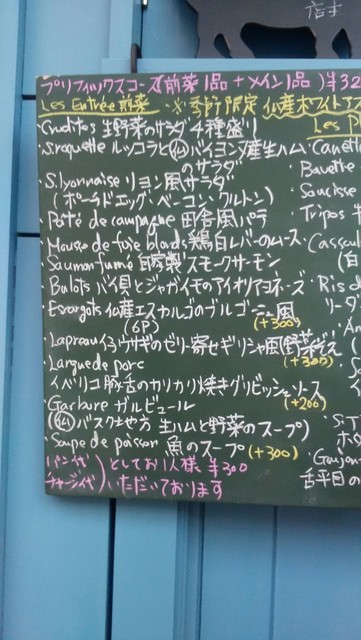 店主
プリフィックスコース(前菜1品+メイン1品)¥32
Les Entrée 前菜 ※季節限定 仏産ホワイトア
Les Pl
Crudites 生野菜のサラダ4種盛り
S.roquette ルッコラと仏バイヨンヌ産生ハム
のサラダ
S.lyonnaise リヨン風サラダ
(ポーチドエッグ・ベーコン・クルトン)
Paté de campagne 田舎風パテ
Mousse de foie blonds 鶏白レバーのムース
Saumon fumé 自家製スモークサーモン
Bulots バイ貝とジャガイモのアイオリアンチョビーズ
Escargots 仏産エスカルゴのブルゴーニュ風
(6P) (+300)
Lapereau(仏)ウサギのゼリー寄せギリシャ風野菜
(+300)
Langue de porc
イベリコ豚舌のカリカリ焼きグリビッシュソース
(+200)
Garbure ガルビュール
(仏バスク地方 生ハムと野菜のスープ)
Soupe de poisson 魚のスープ (+300)
パン代
チャージ代
)としてお1人様 ¥300
いただいております
Canette
Bavette
Saucisse
Tripes
Cassoul
(白
Ris d
リーダ